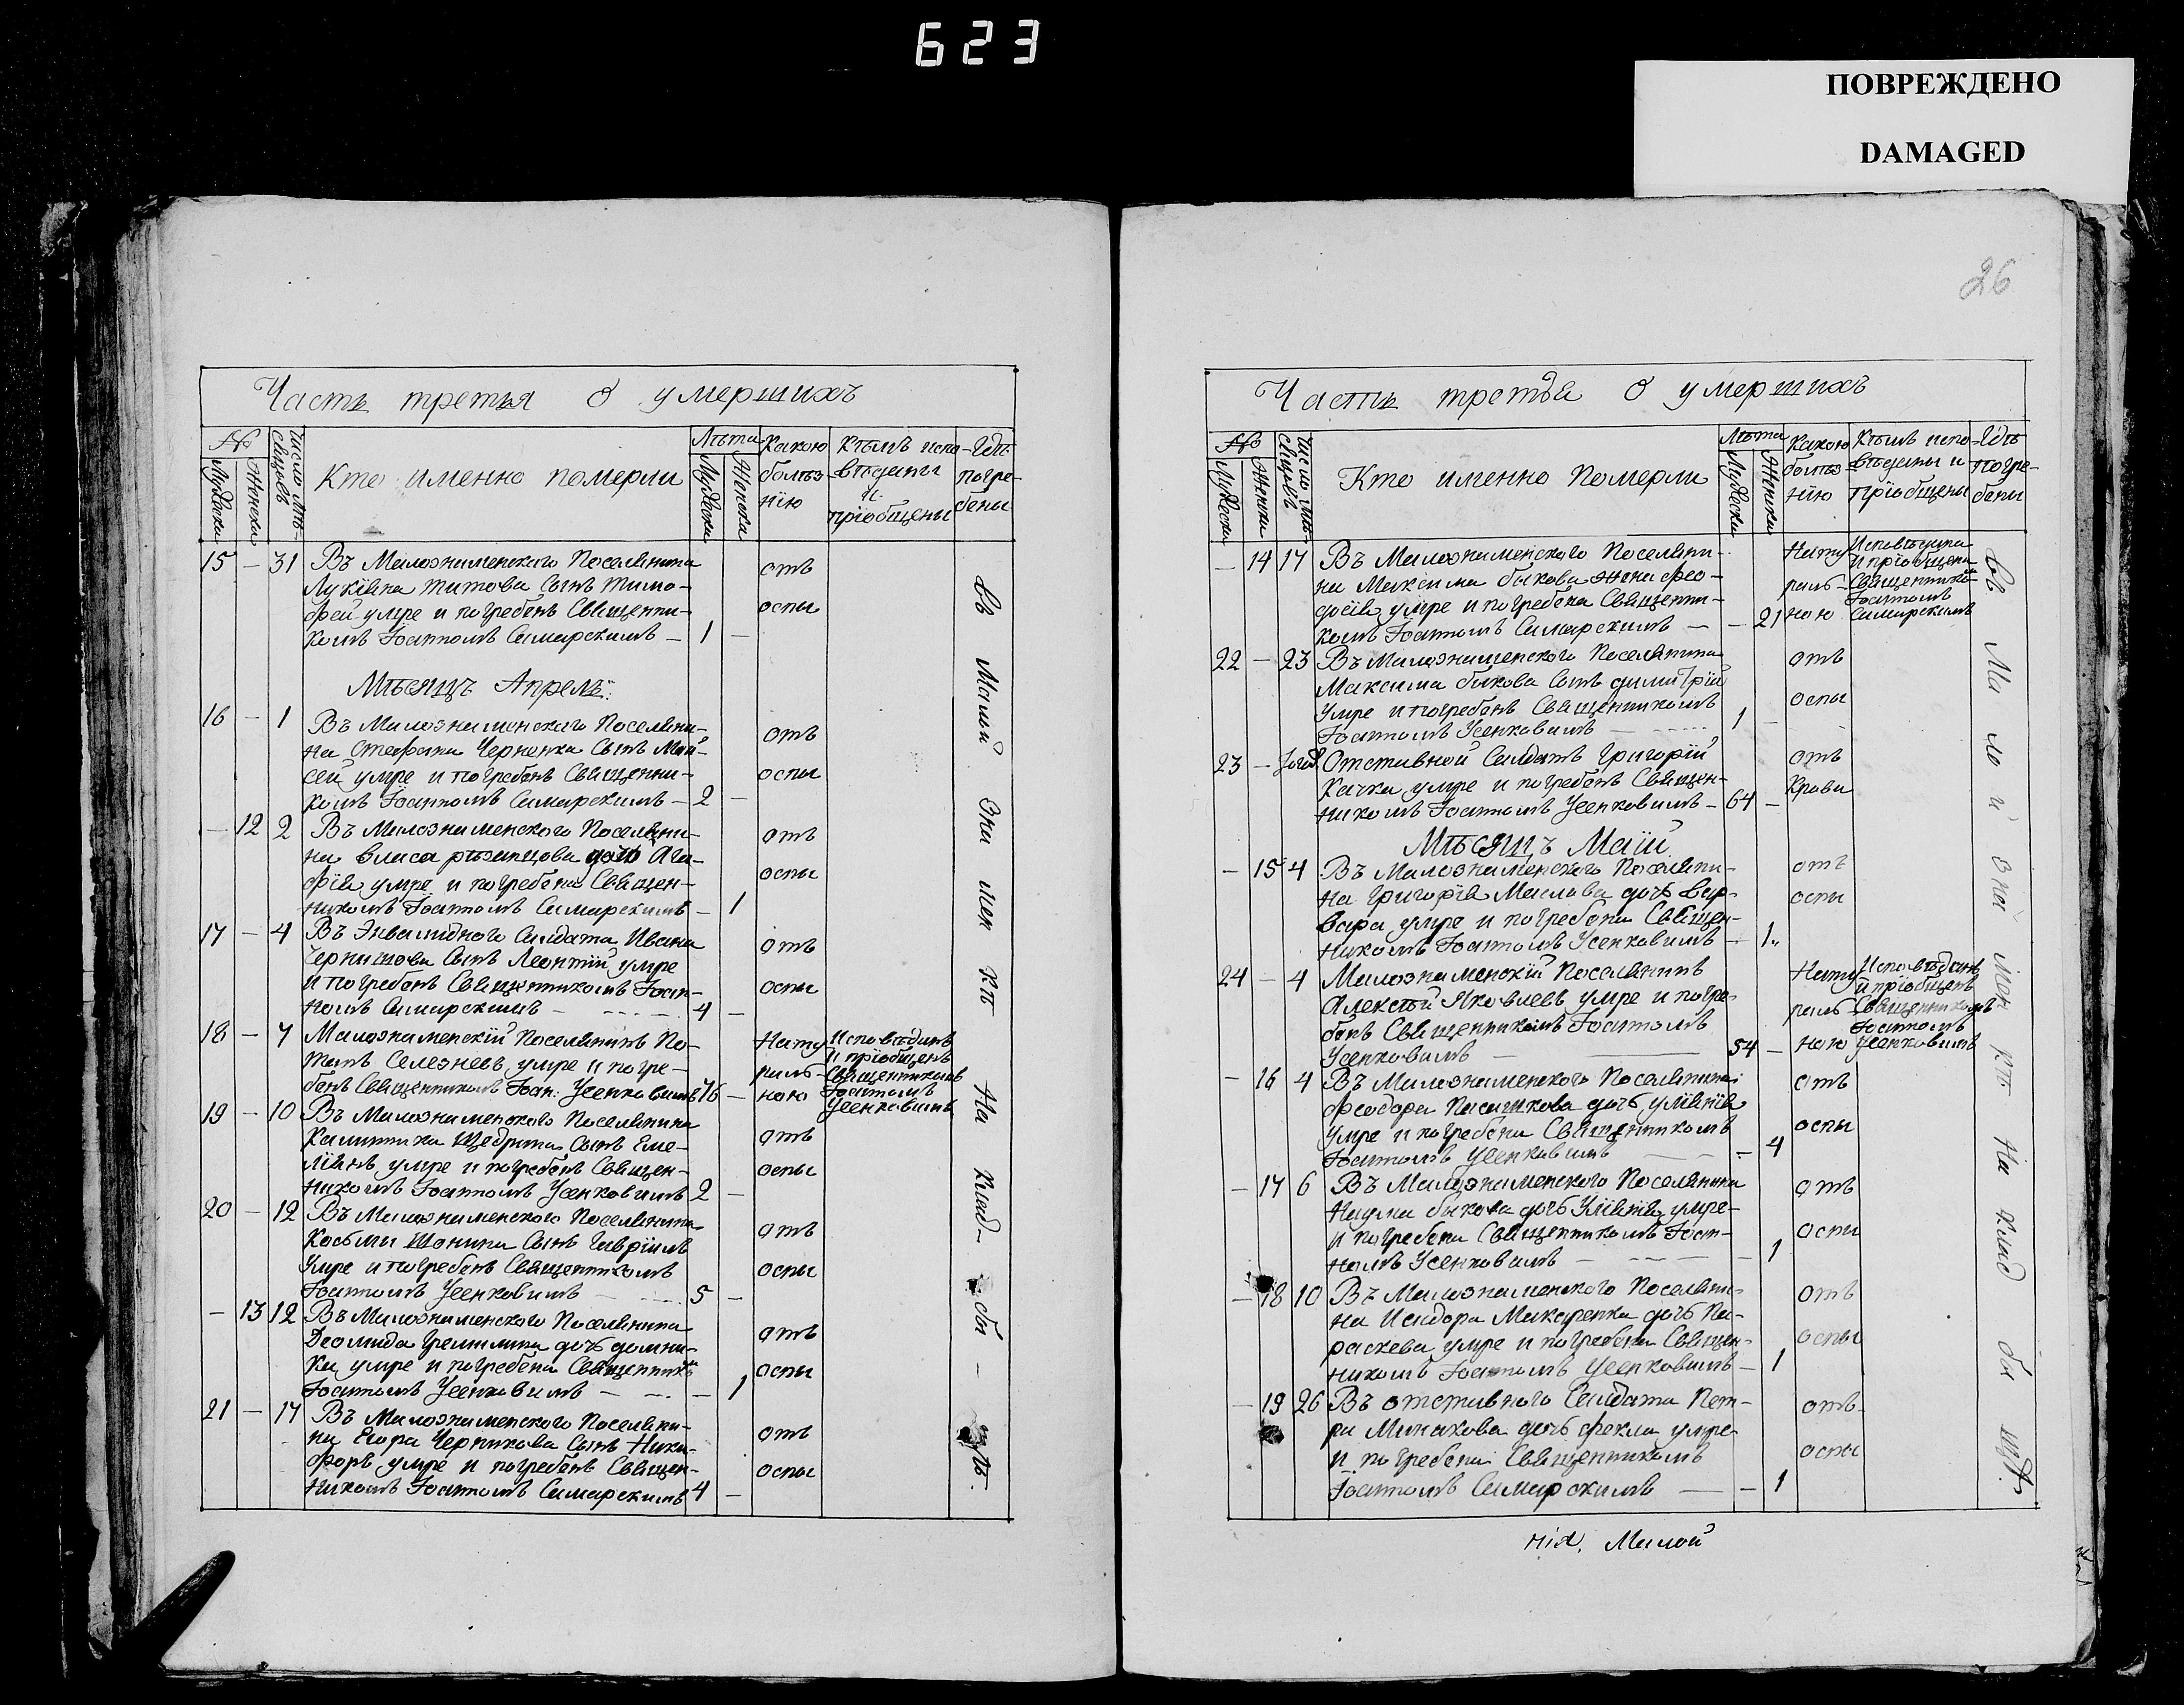 623
ПОВРЕЖДЕНО
DAMAGED
Часть третья о умершихъ
№
Мужеска
Женска
Число мѣсяцовъ
Кто именно померли
Лѣта
Мужеска
Женска
Какою болѣзнію
Кѣмъ исповѣданы и пріобщены
Гдѣ погребены
15 – 31 Въ Малознаменского Поселянина
Лукіяна Титова Сынъ Тимо-
фей умре и погребенъ Священни-
комъ Іоанномъ Самарскимъ – 1 –
отъ
оспы
Мѣсяцъ Апрель
16 – 1 Въ Малознаменского Поселяни-
на Стефана Черненка Сынъ Мой-
сей умре и погребенъ Священни-
комъ Іоанномъ Самарскимъ – 2 –
отъ
оспы
– 12 2 Въ Малознаменского Поселяни-
на Власа рѣзанцова дочь Ага-
фія умре и погребена Священ-
никомъ Іоанномъ Самарскимъ – 1
отъ
оспы
17 – 4 Въ Энвалидного Салдата Ивана
Чернишова Сынъ Леонтій умре
и погребенъ Священникомъ Іоан-
номъ Самарскимъ – 4 –
отъ
оспы
18 – 7 Малознаменскій Поселянинъ По-
тапъ Селезневъ умре и погре-
бенъ Священникомъ Іоан. Усенковимъ 76 –
Нату
раль-
ною
Исповѣданъ
и пріобщенъ
Священникомъ
Іоанномъ
Усенковимъ
19 – 10 Въ Малознаменского Поселянина
Калинника Щедрина Сынъ Еме-
ліянъ умре и погребенъ Священ-
никомъ Іоанномъ Усенковимъ 2 –
отъ
оспы
20 – 12 Въ Малознаменского Поселянина
Косьми Шонина Сынъ Гавріилъ
Умре и погребенъ Священникомъ
Іоанномъ Усенковимъ – 5 –
отъ
оспы
– 13 12 Въ Малознаменского Поселянина
Деомида дочь домни-
ка умре и погребена Священникомъ
Іоанномъ Усенковимъ – – 1
отъ
оспы
21 – 17 Въ Малознаменского Поселяни-
на Егора Черникова Сынъ Ники-
форъ умре и погребенъ Священ-
никомъ Іоанномъ Самарскимъ 4 –
отъ
оспы
въ Малой Зна мен кѣ На клад- би – щѣ.
26
Часть третья о умершихъ
№
Мужеска
Женска
Число мѣсяцовъ
Кто именно померли
Лѣта
Мужеска
Женска
Какою болѣзнію
Кѣмъ исповѣданы и пріобщены
Гдѣ погребены
– 14 17 Въ Малознаменского Поселяни-
на Максима быкова жена фео-
досія умре и погребена Священни-
комъ Іоанномъ Самарскимъ – – 21
Нату
раль-
ною
Исповѣдана
и пріобщена
Священникомъ
Іоанномъ
Самарскимъ
22 – 23 Въ Малознаменского Поселянина
Максима быкова Сынъ димитрій
умре и погребенъ Священникомъ
Іоанномъ Усенковимъ – 1 –
отъ
оспы
23 – Отставной Салдатъ Григорій
Качка умре и погребенъ Священ-
никомъ Іоанномъ Усенковимъ – 64 –
отъ
Крови
Мѣсяцъ Маій
– 15 4 Въ Малознаменского Поселяни-
на Григорія Маслова дочь Вар-
вара умре и погребена Священ-
никомъ Іоанномъ Усенковимъ – 1
отъ
оспы
24 – 4 Малознаменскій Поселянинъ
Алексѣй Яковлевъ умре и погре-
бенъ Священникомъ Іоанномъ
Усенковимъ – 54 –
Нату
раль-
ною
Исповѣданъ
и пріобщенъ
Священникомъ
Іоанномъ
Усенковимъ
– 16 4 Въ Малознаменского Поселянина
Феодора Пасашкова дочь уліянія
умре и погребена Священникомъ
Іоанномъ Усенковимъ – 4
отъ
оспы
– 17 6 Въ Малознаменского Поселянина
Наума быкова дочь Уліянія умре
и погребена Священникомъ Іоан-
номъ Усенковимъ – 1
отъ
оспы
– 18 10 Въ Малознаменского Поселяни-
на Исидора Макаренка дочь Па-
раскева умре и погребена Священ-
никомъ Іоанномъ Усенковимъ – 1
отъ
оспы
– 19 26 Въ отставного Салдата Пет-
ра Минакова дочь фекла умре
и погребена Священникомъ
Іоанномъ Самарскимъ – – 1
отъ
оспы
въ Ма ло й Зна мен кѣ На клад би щѣ
Малой